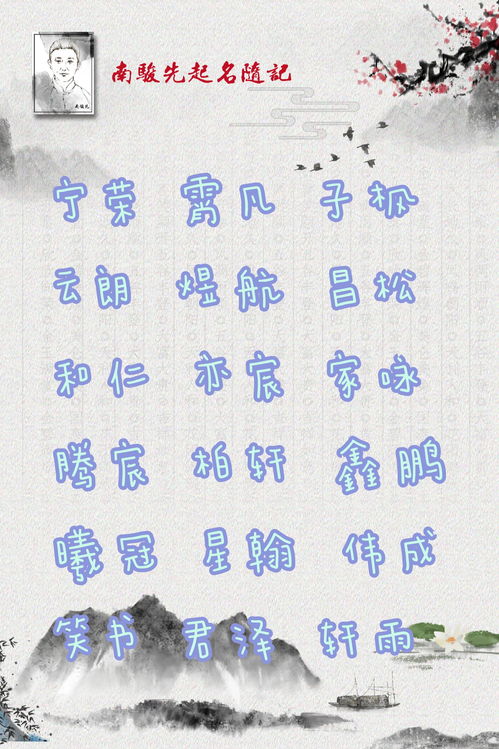 南駿先起名隨記
宁荣 霄凡 子枫
云朗 煜航 昌松
和仁 亦宸 家咏
腾宸 柏轩 鑫鹏
曦冠 星翰 伟成
笑书 君泽 轩雨